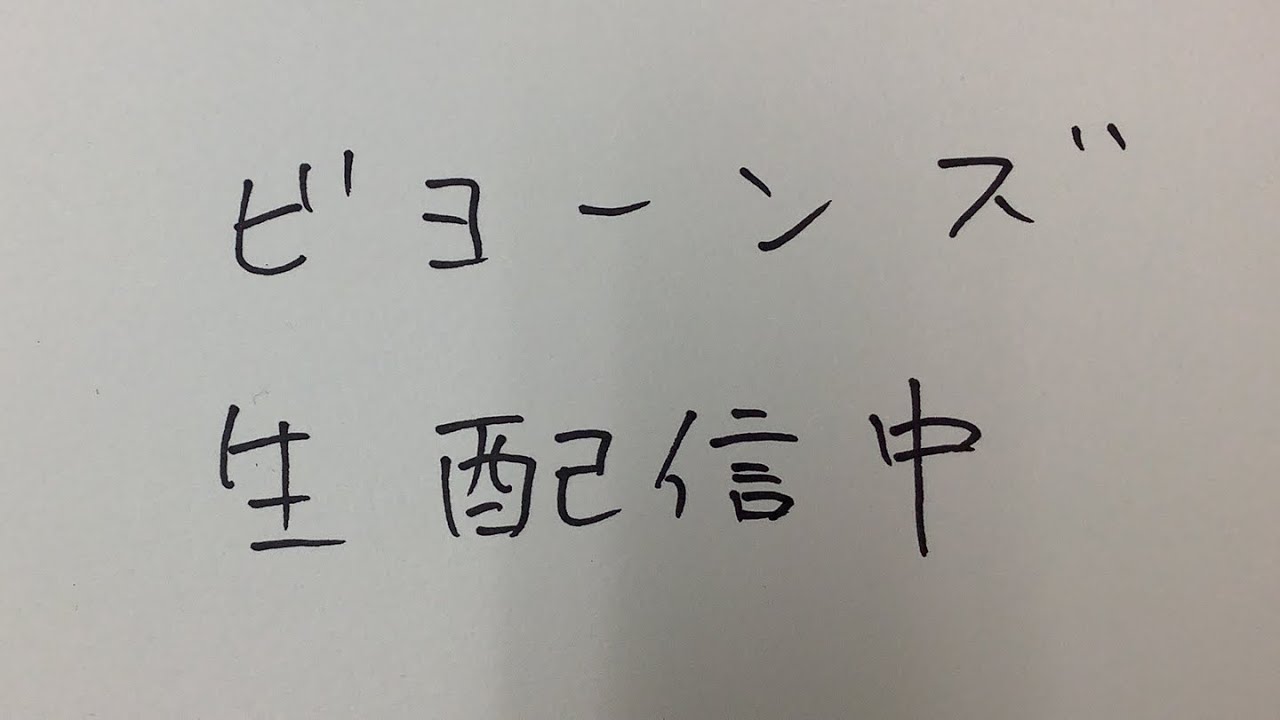 ビヨーンズ
生配信中